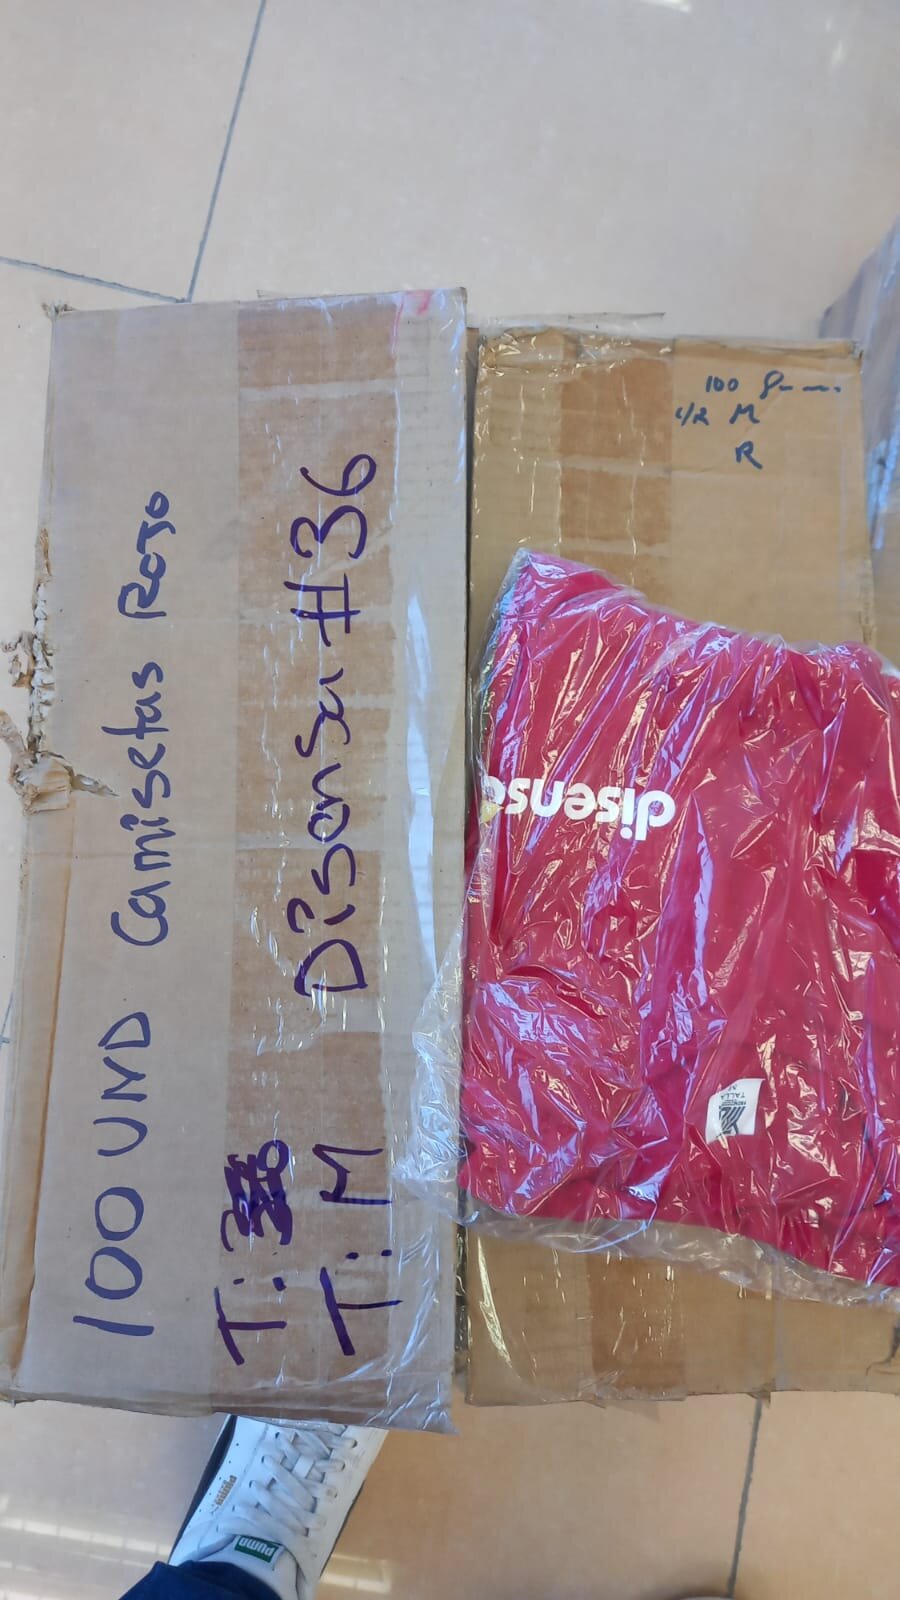 100 UND Camisetas Rojo
T:
T: M Disensa #36
100
M
R
disensa
TALLA
M
PUMA
PUMA